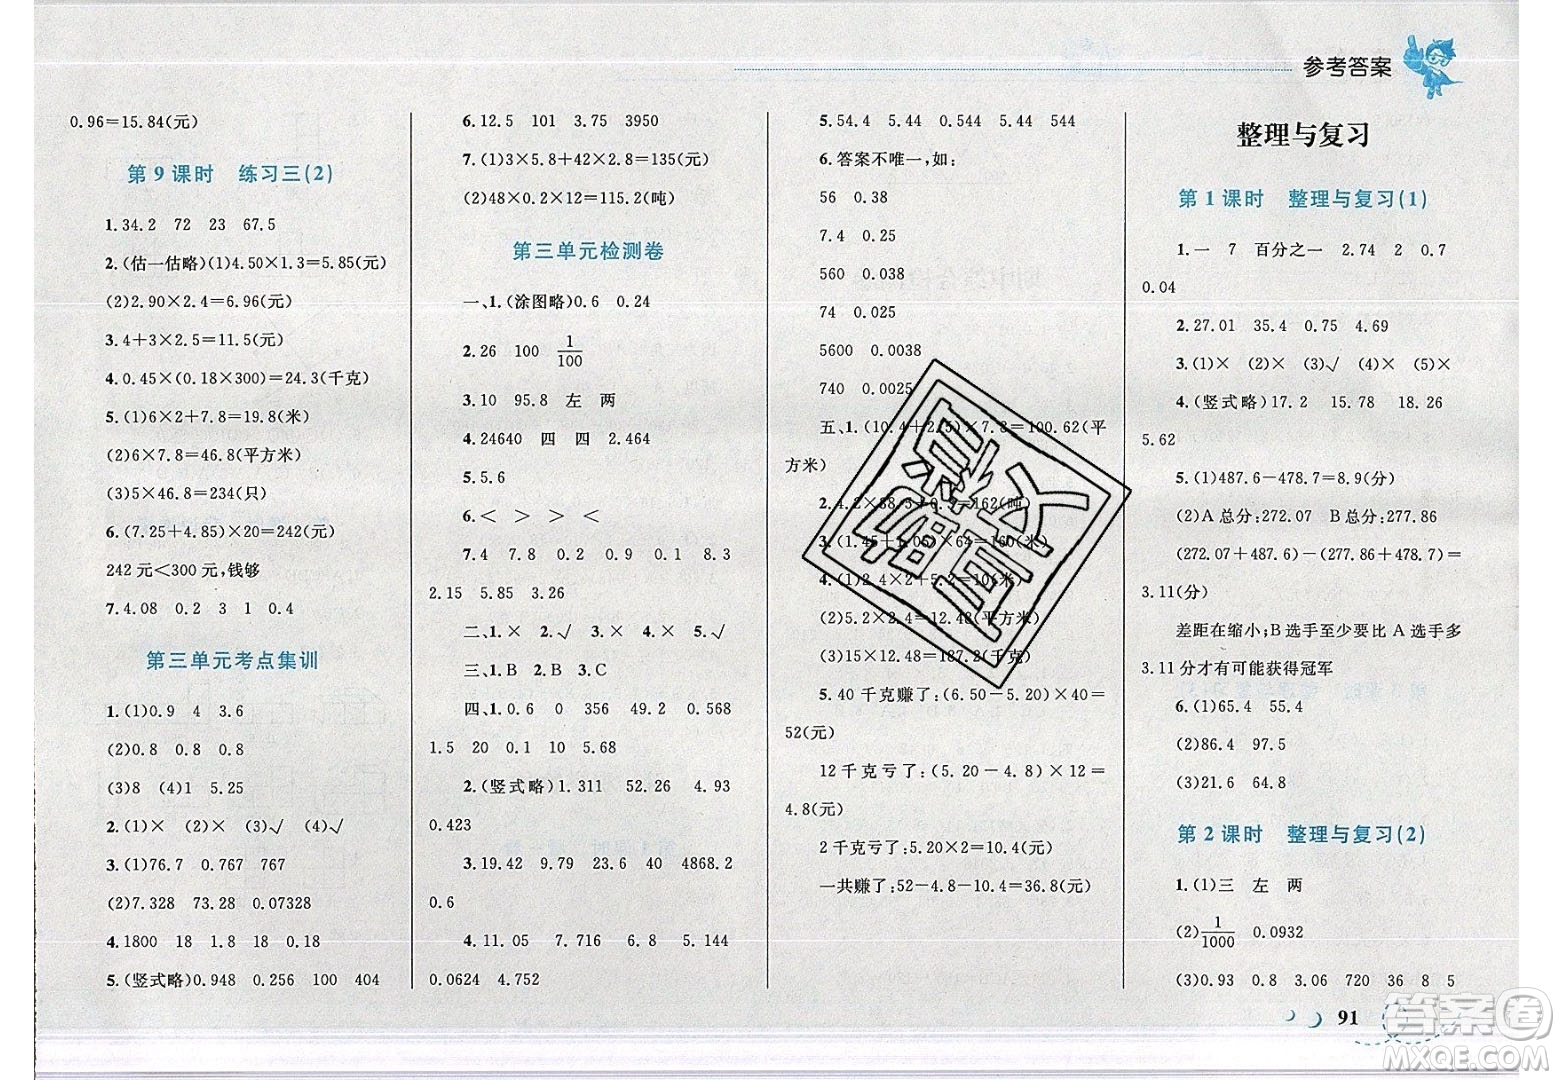 参考答案
0.96=15.84(元)
第 9 课时　练习三(2)
1.34.2　72　23　67.5
2.(估一估略)(1)4.50×1.3=5.85(元)
(2)2.90×2.4=6.96(元)
3.4+3×2.5=11.5(元)
4.0.45×(0.18×300)=24.3(千克)
5.(1)6×2+7.8=19.8(米)
(2)6×7.8=46.8(平方米)
(3)5×46.8=234(只)
6.(7.25+4.85)×20=242(元)
242 元<300 元,钱够
7.4.08　0.2　3　1　0.4
第三单元考点集训
1.(1)0.9　4　3.6
(2)0.8　0.8　0.8
(3)8　(4)1　5.25
2.(1)×　(2)×　(3)√　(4)√
3.(1)76.7　0.767　767
(2)7.328　73.28　0.07328
4.1800　18　1.8　18　0.18
5.(竖式略)0.948　0.256　100　404
6.12.5　101　3.75　3950
7.(1)3×5.8+42×2.8=135(元)
(2)48×0.2×12=115.2(吨)
第三单元检测卷
一、1.(涂图略)0.6　0.24
2.26　100　1/100
3.10　95.8　左　两
4.24640　四　四　2.464
5.5.6
6.<　>　>　<
7.4　7.8　0.2　0.9　0.1　8.3
2.15　5.85　3.26
二、1.×　2.√　3.×　4.×　5.√
三、1.B　2.B　3.C
四、1.0.6　0　356　49.2　0.568
1.5　20　0.1　10　5.68
2.(竖式略)1.311　52.26　4.93
0.423
3.19.42　9　23.6　40　4868.2
0.6
4.11.05　7.716　6.8　5.144
0.0624　4.752
5.54.4　5.44　0.544　5.44　544
6.答案不唯一,如:
56　0.38
7.4　0.25
560　0.038
74　0.025
5600　0.0038
740　0.0025
五、1.(10.4+2.5)×7.8=100.62(平
方米)
2.4.2×38.5+0.3=162(吨)
3.(1.45+1.05)×64=160(米)
4.(1)2.4×2+5.2=10(米)
(2)5.2×2.4=12.48(平方米)
(3)15×12.48=187.2(千克)
5.40 千克赚了:(6.50-5.20)×40=
52(元)
12 千克亏了:(5.20-4.8)×12=
4.8(元)
2 千克亏了:5.20×2=10.4(元)
一共赚了:52-4.8-10.4=36.8(元)
整理与复习
第 1 课时　整理与复习(1)
1.一　7　百分之一　2.74　2　0.7
0.04
2.27.01　35.4　0.75　4.69
3.(1)×　(2)×　(3)√　(4)×　(5)×
4.(竖式略)17.2　15.78　18.26
5.62
5.(1)487.6-478.7=8.9(分)
(2)A 总分:272.07　B 总分:277.86
(272.07+487.6)-(277.86+478.7)=
3.11(分)
差距在缩小,B 选手至少要比 A 选手多
3.11 分才有可能获得冠军
6.(1)65.4　55.4
(2)86.4　97.5
(3)21.6　64.8
第 2 课时　整理与复习(2)
1.(1)三　左　两
(2)1/1000　0.0932
(3)0.93　0.8　3.06　720　36　8　5
91
答案卷
MXQE.COM